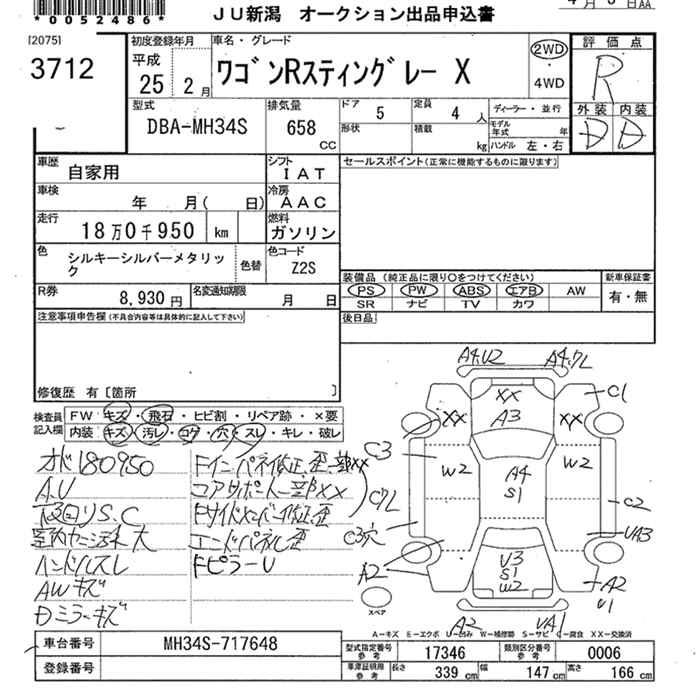 *0052486*
JU新潟 オークション出品申込書
4月 日AA
[2075]
3712
初度登録年月
平成
25 2月
車名・グレード
ワゴンRスティングレー X
2WD
・
4WD
評価点
R
外装 内装
D D
型式
DBA-MH34S
排気量
658
CC
ドア
5
定員
4 人
形状
積載
kg
ディーラー・並行
モデル年式 年
ハンドル 左・右
車歴
自家用
シフト
IAT
セールスポイント(正常に機能するものに限ります)
車検
年 月( 日)
冷房
AAC
走行
18万0千950 km
燃料
ガソリン
色
シルキーシルバーメタリック
色替
色コード
Z2S
R券
8,930円
名変通知期限
月 日
装備品(純正品に限り○をつけてください)
PS PW ABS エアB AW
SR ナビ TV カワ
新車保証書
有・無
後日品
注意事項申告欄(不具合内容等は具体的に記入して下さい)
修復歴 有〔箇所 〕
検査員
記入欄
FW キズ・飛石・ヒビ割・リペア跡・×要
内装 キズ・汚レ・コゲ・穴・スレ・キレ・破レ
オド180950
A,U
下回りS,C
ハンドルスレ
AWキズ
Dミラーキズ
Fインパネ修正、歪一部XX
コアサポート一部XX
エンドパネル歪
FピラーU
A4,U2
A4,ワレ
C1
XX
A3
XX
XX
C3
W2
A4
S1
W2
C2
C3穴
UA3
A2
U3
S1
W2
A2
U1
A2
UA1
スペア
A-キズ E-エクボ U-凹み W-補修跡 S-サビ C-腐食 XX-交換済
車台番号
MH34S-717648
登録番号
型式指定番号
参考
17346
類別区分番号
参考
0006
車庫証明用
参考
長さ
339 cm
幅
147 cm
高さ
166 cm